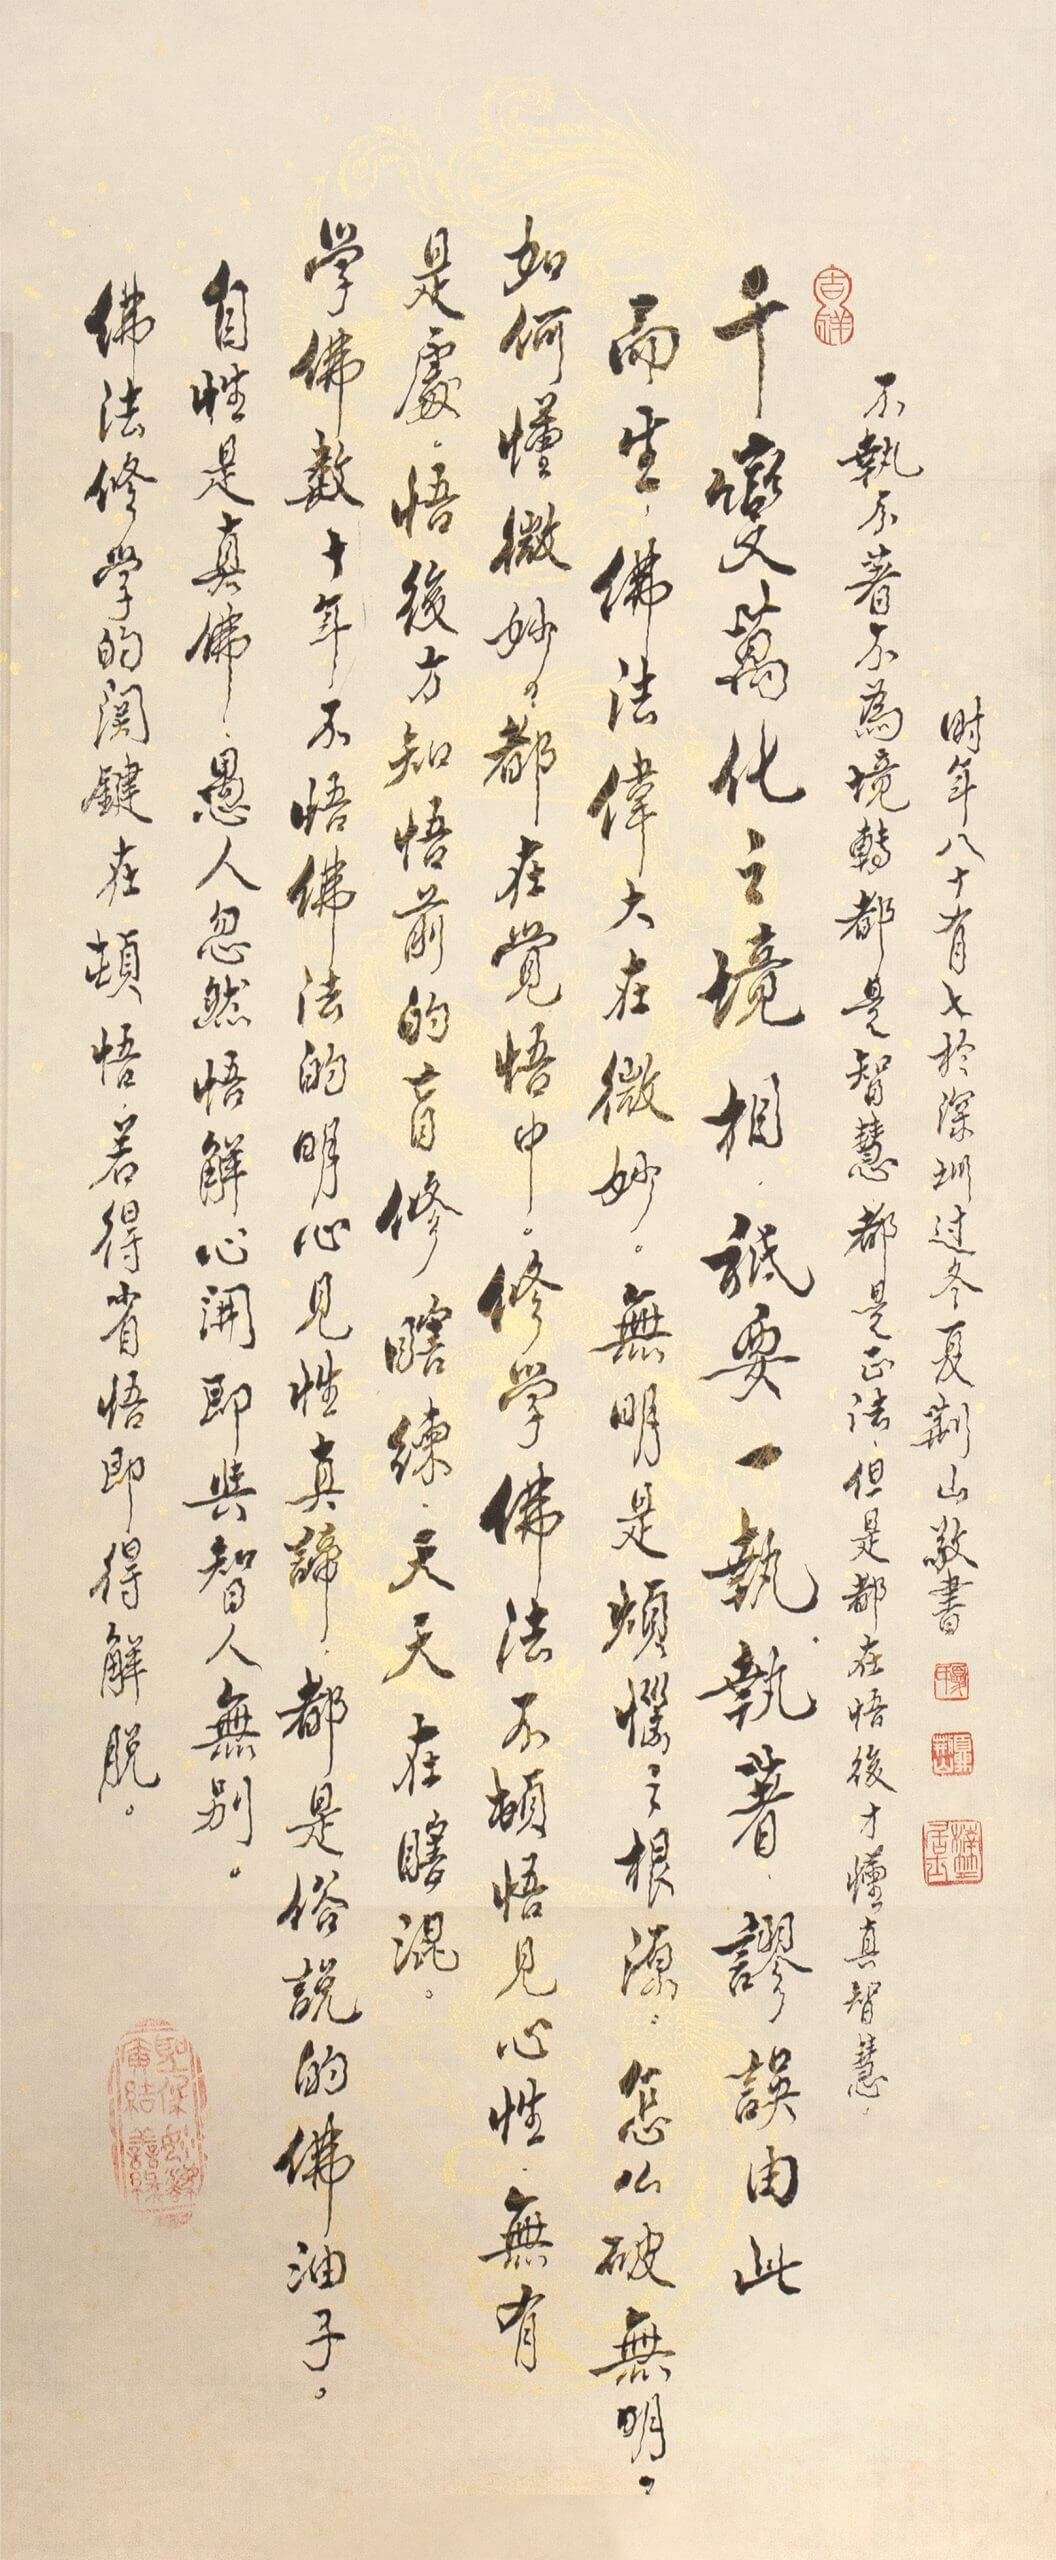 吉祥
千變萬化之境相，祇要一執執著，謬誤由此
而生，佛法偉大在微妙。無明是煩惱之根源。怎么破無明，
如何懂微妙，都在覺悟中。修學佛法不頓悟見心性，無有
是處。悟後方知悟前的盲修瞎練，天天在瞎混。
学佛数十年，不悟佛法的明心見性真諦，都是俗說的佛油子。
自性是真佛，愚人忽然悟解心開即與智人無别。
佛法修学的関鍵在頓悟，若得省悟即得解脱。
不執不著不為境轉都是智慧，都是正法，但是都在悟後才懂真智慧，
时年八十有七於深圳过冬夏荆山敬書
廣結善緣